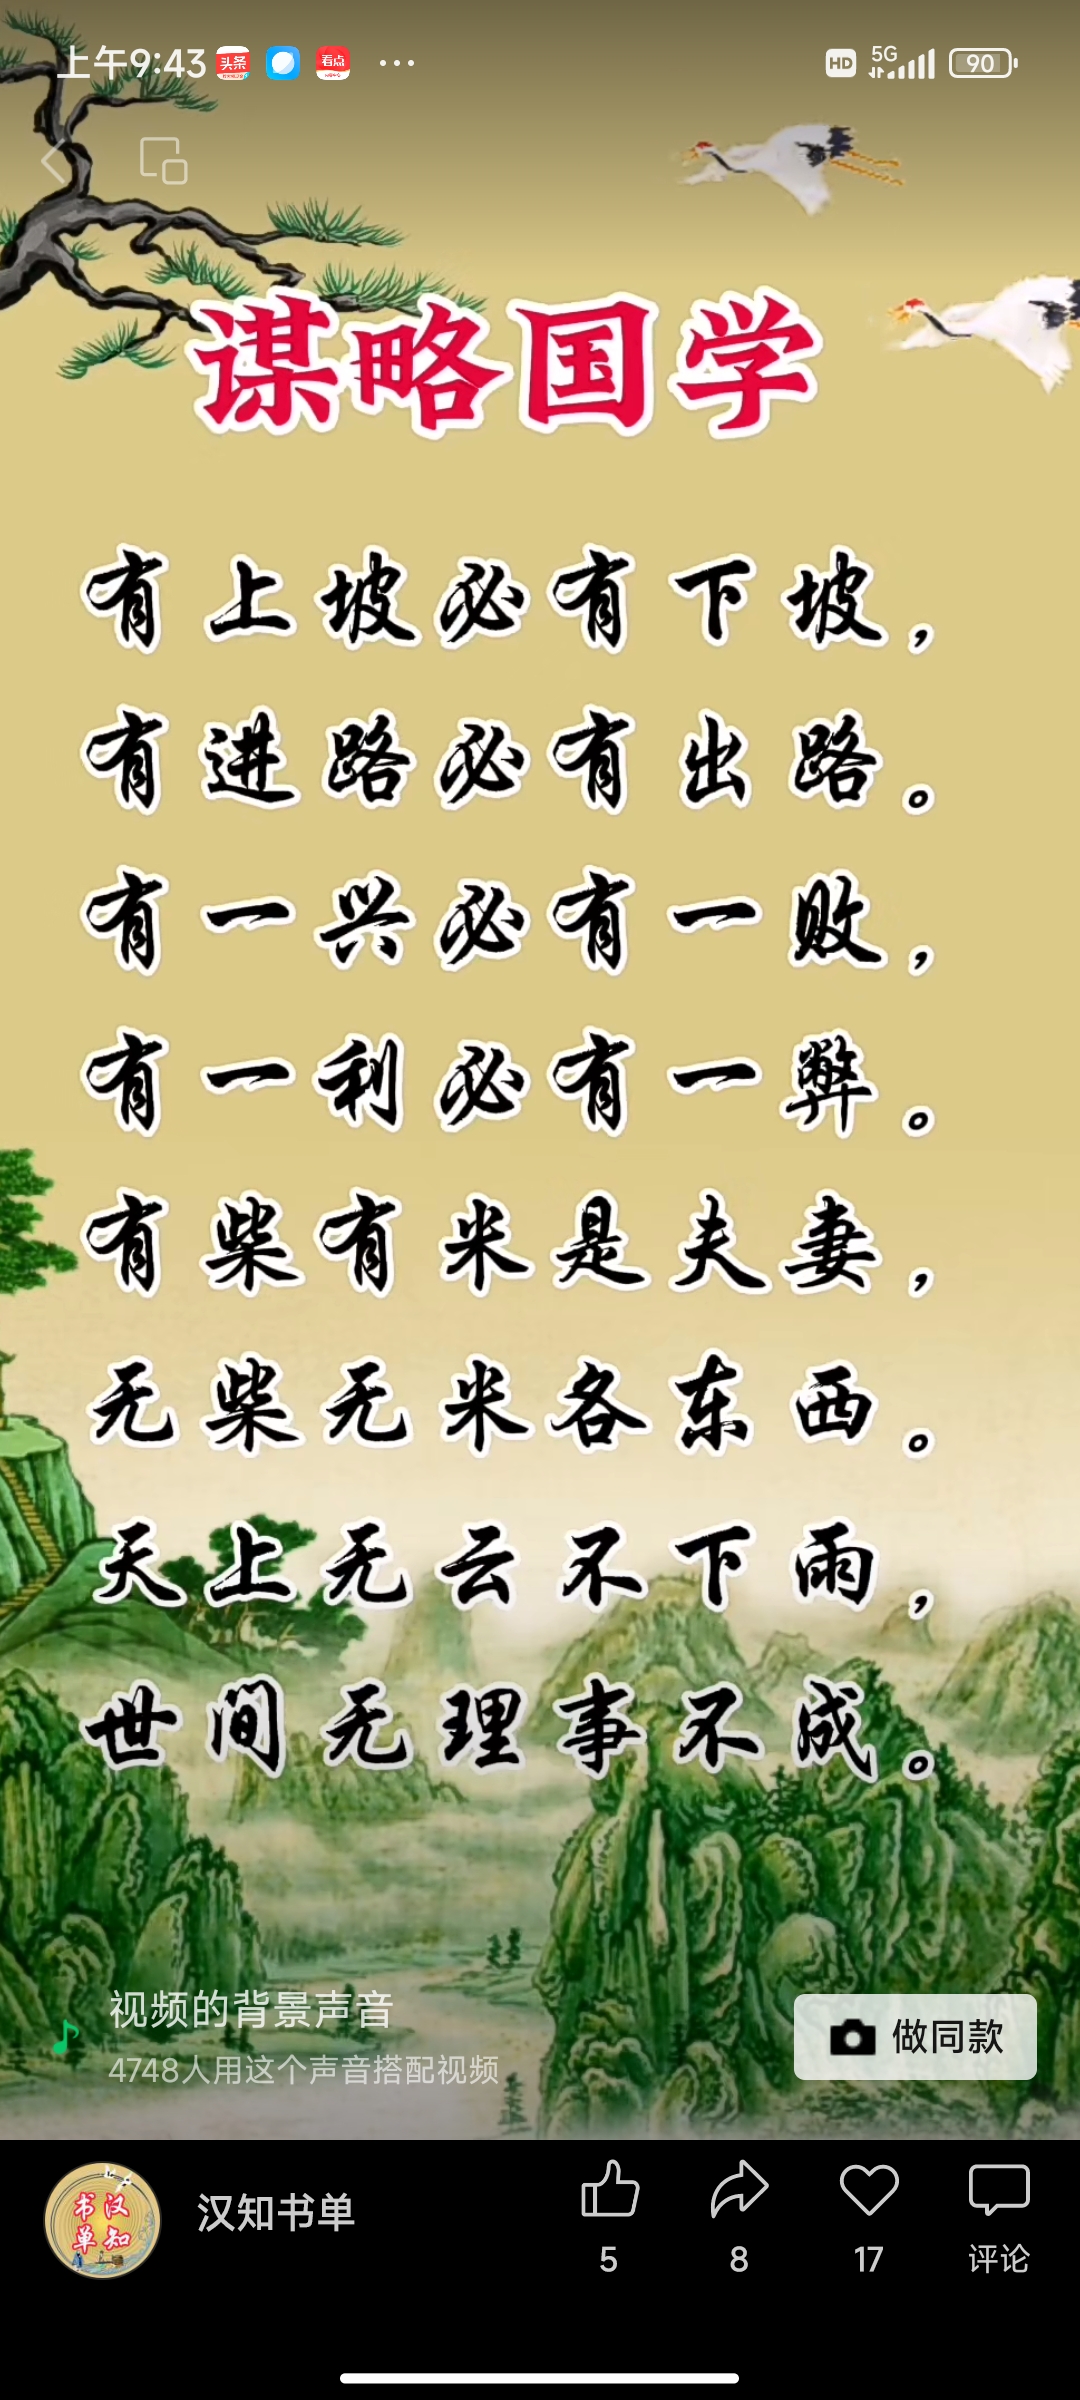 上午9:43 头条 看点 ... HD 5G 90
谋略国学
有上坡必有下坡，
有进路必有出路。
有一兴必有一败，
有一利必有一弊。
有柴有米是夫妻，
无柴无米各东西。
天上无云不下雨，
世间无理事不成。
视频的背景声音
4748人用这个声音搭配视频
做同款
汉知书单
汉知书单
5 8 17 评论